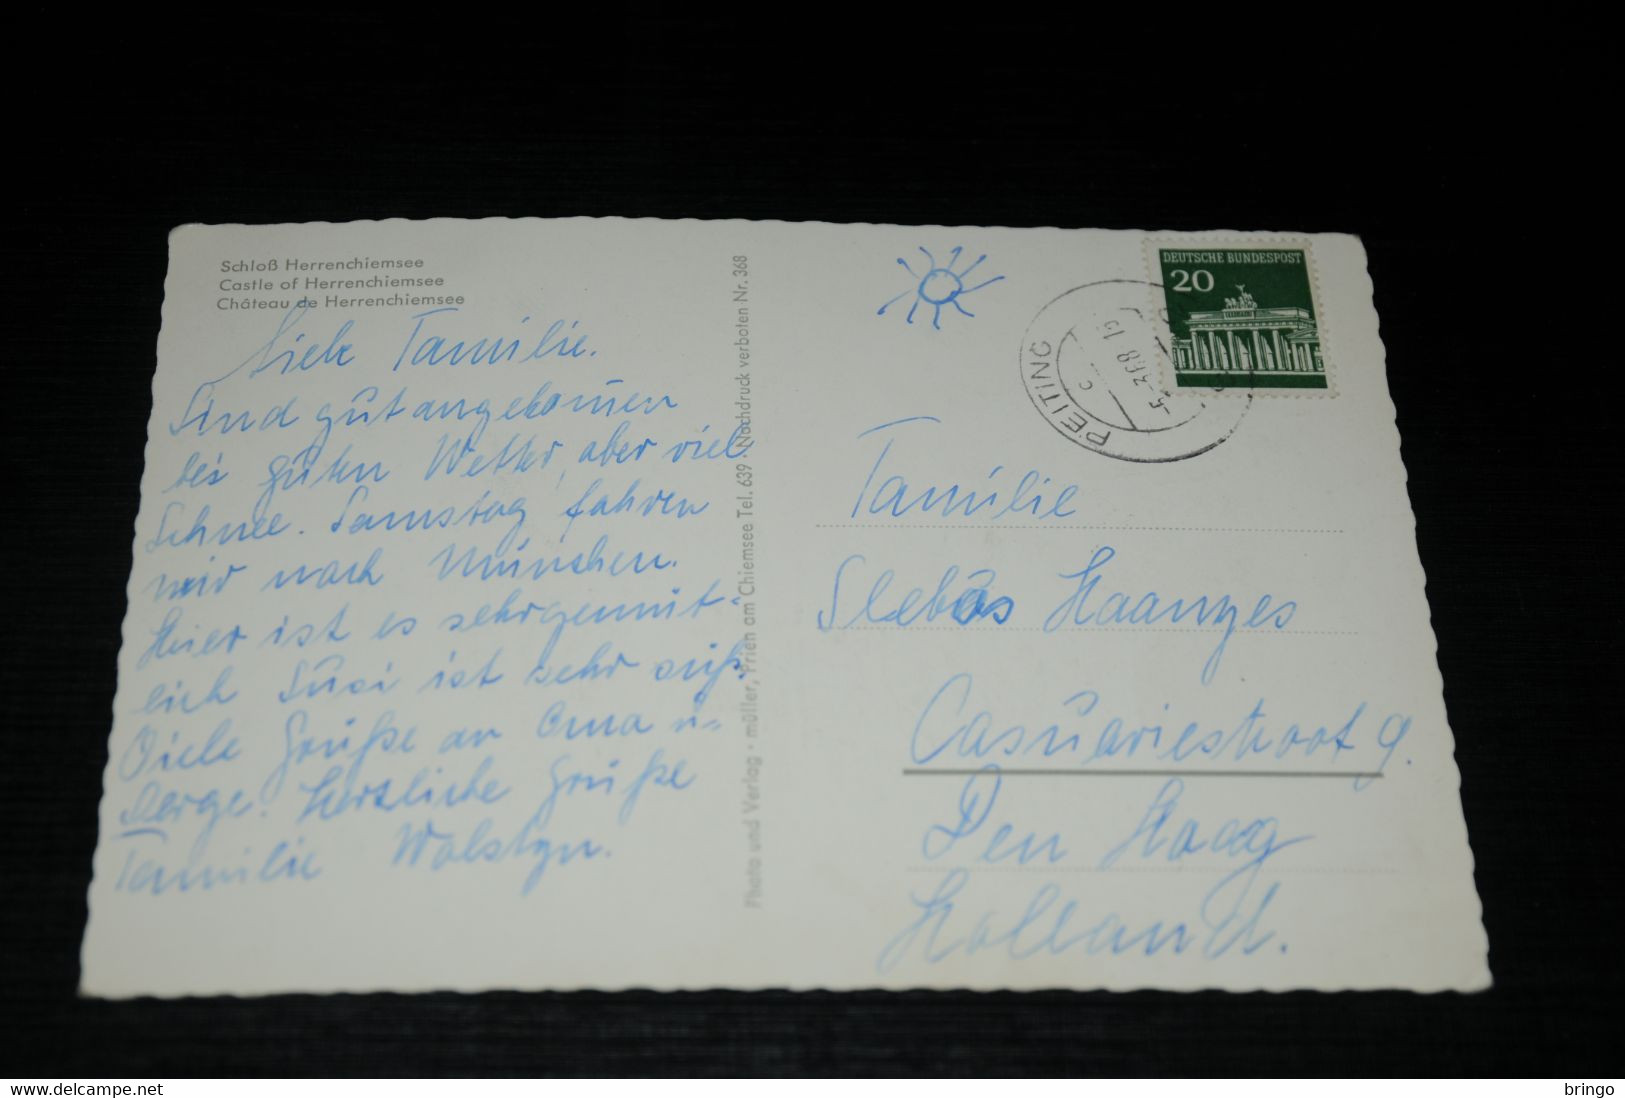 Schloß Herrenchiemsee
Castle of Herrenchiemsee
Château de Herrenchiemsee
Liebe Familie.
Sind gut angekommen
bei guten Wetter, aber viel
Schnee. Samstag fahren
wir nach München.
Hier ist es sehr gemüt-
lich Susi ist sehr süß.
Viele Grüße an Oma u-
Serge. Herzliche Grüße
Familie Wolstyn.
Photo und Verlag · müller, Prien am Chiemsee Tel. 639 · Nachdruck verboten Nr. 368
DEUTSCHE BUNDESPOST
20
PEITING
c
-5.-3.68
Familie
Slebos Haanyes
Casuariestraat 9.
Den Haag
Holland.
https://www.delcampe.net
bringo